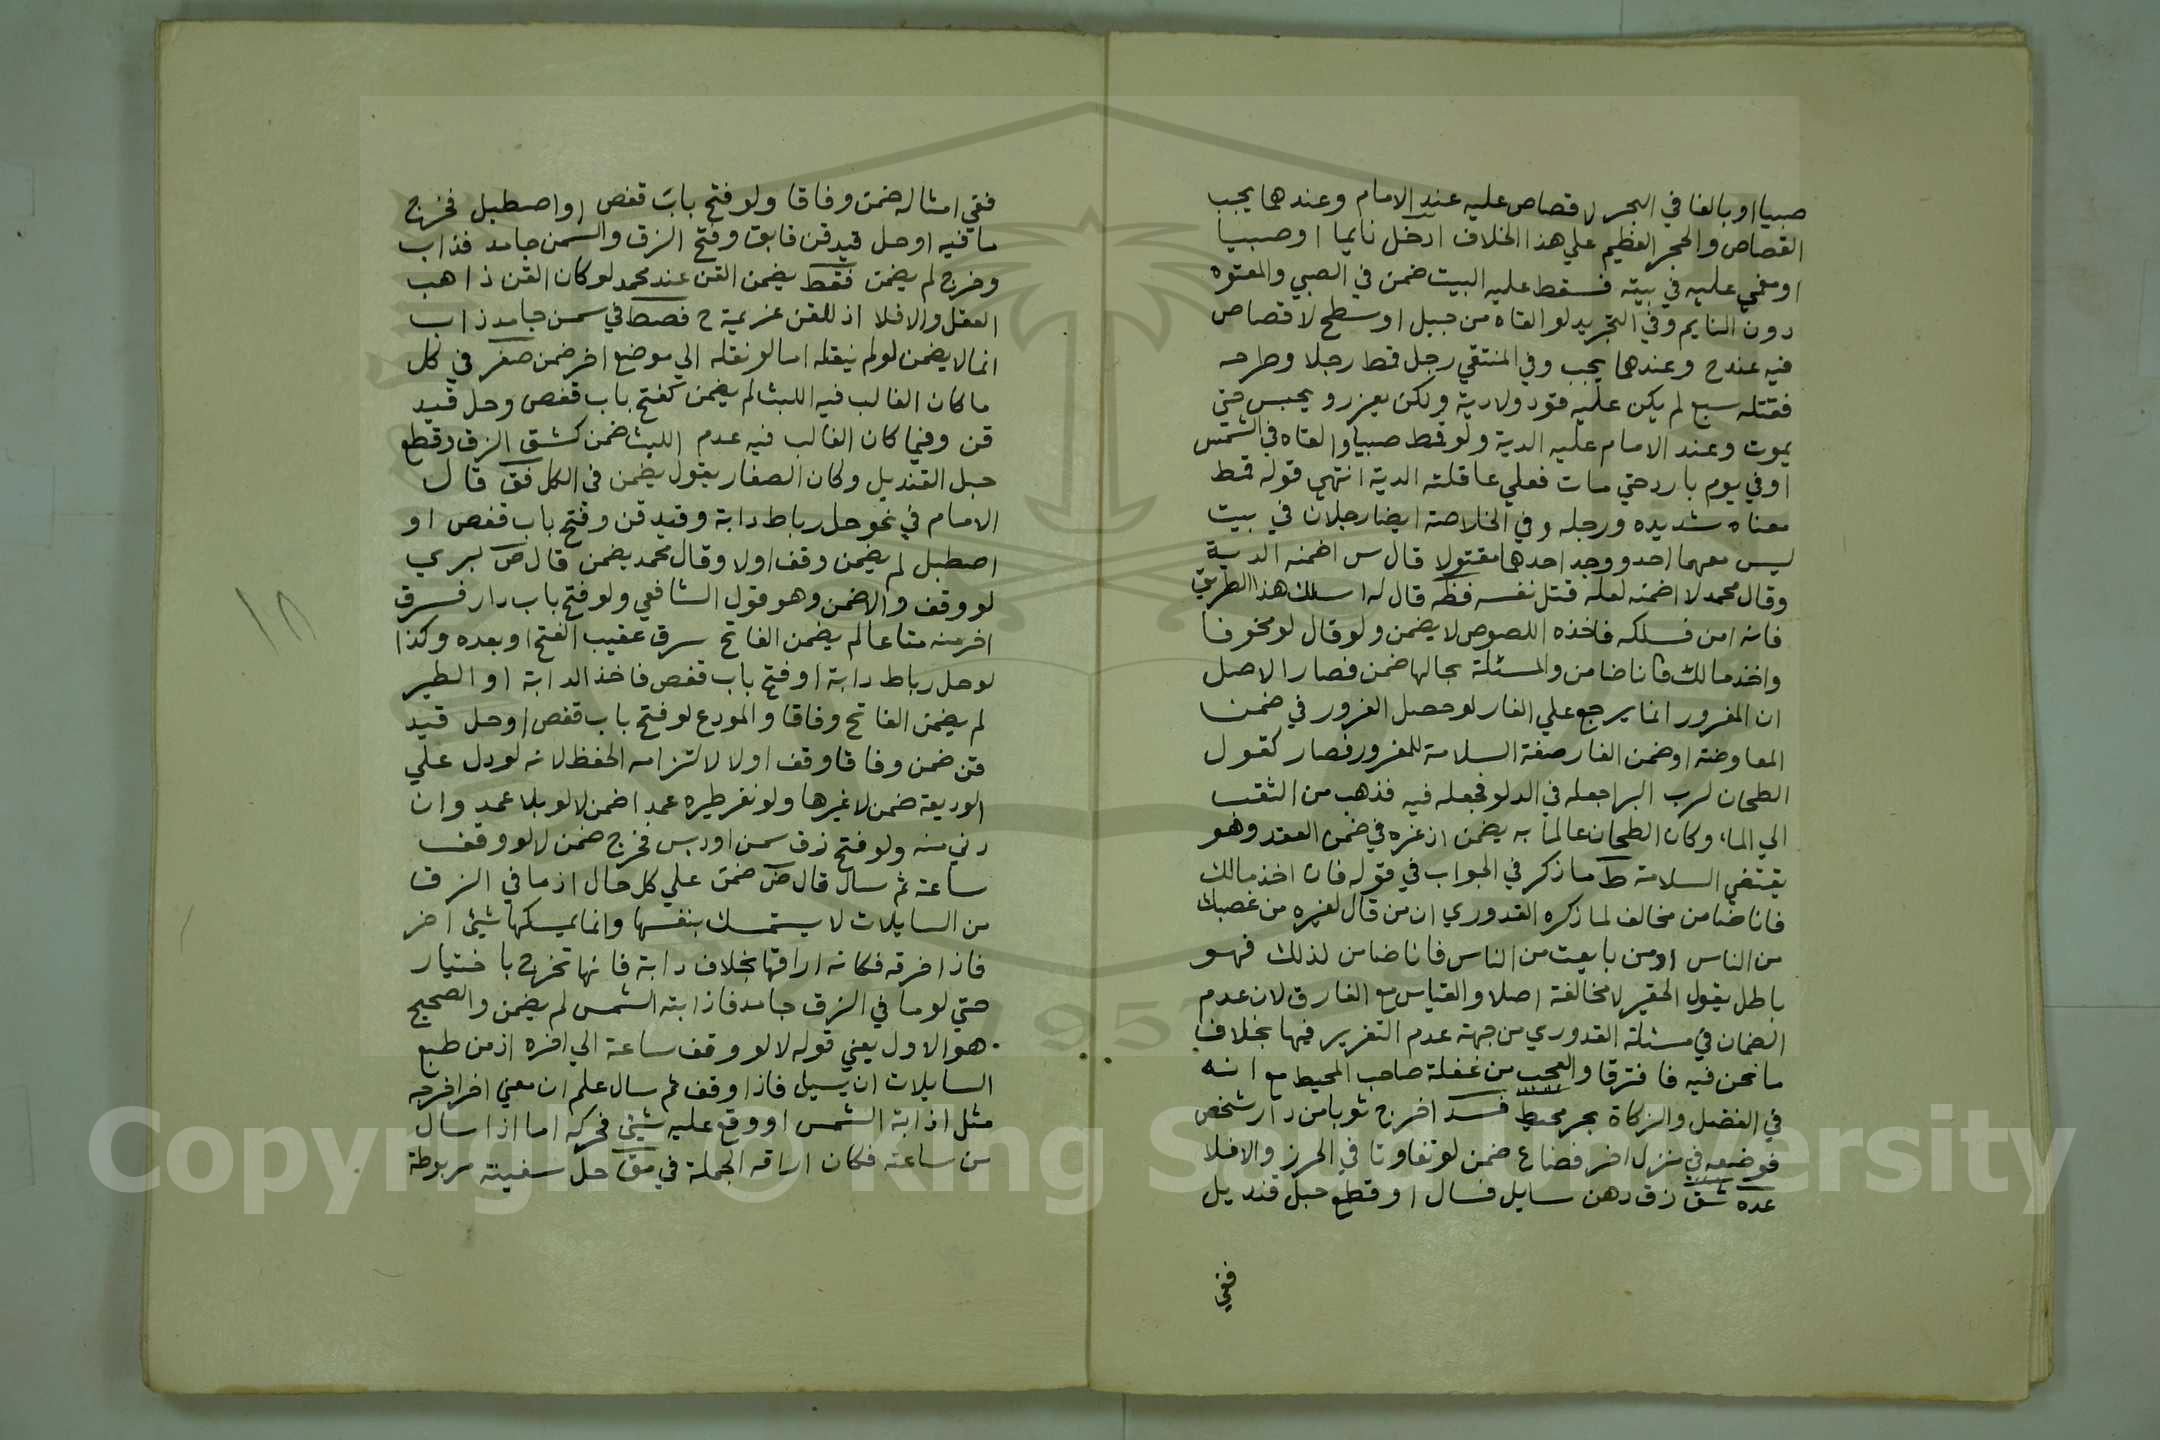 صبيا او بالغا في البحر لا قصاص عليه عند الامام وعندهما يجب
القصاص والحجر العظيم علي هذا الخلاف ادخل نايما او صبيا
او مغمي عليه في بيته فسقط عليه البيت ضمن في الصبي والمعتوه
دون النايم وفي التجريد لو القاه من جبل او سطح لا قصاص
فيه عند ح وعندهما يجب وفي المنتقي رجل قمط رجلا وطرحه
فقتله سبع لم يكن عليه قود ولا دية ولكن يعزر ويحبس حتي
يموت وعند الامام عليه الدية ولو قمط صبيا والقاه في الشمس
او في يوم بارد حتي مات فعلي عاقلته الدية انتهي قوله قمط
معناه شد يده ورجله وفي الخلاصة ايضا رجلان في بيت
ليس معهما احد ووجد احدهما مقتولا قال س اضمنه الدية
وقال محمد لا اضمنه لعله قتل نفسه فظه قال له اسلك هذا الطريق
فانه امن فسلكه فاخذه اللصوص لا يضمن ولو قال لو مخوفا
واخذ مالك فانا ضامن والمسئلة بحالها ضمن فصار الاصل
ان المغرور انما يرجع علي الغار لو حصل الغرور في ضمن
المعاوضة او ضمن الغار صفة السلامة للمغرور فصار كقول
الطحان لرب البر اجعله في الدلو فجعله فيه فذهب من الثقب
الي الماء وكان الطحان عالما به يضمن اذ غره في ضمن العقد وهو
يقتضي السلامة ط ما ذكر في الجواب في قوله فان اخذ مالك
فانا ضامن مخالف لما ذكره القدوري ان من قال لغيره من غصبك
من الناس او من بايعت من الناس فانا ضامن لذلك فهو
باطل يقول الحقير لا مخالفة اصلا والقياس مع الفارق لان عدم
الضمان في مسئلة القدوري من جهة عدم التغرير فيها بخلاف
ما نحن فيه فافترقا والعجب من غفلة صاحب المحيط مع انه
في الفضل والزكاة بحر محيط فسد اخرج ثوبا من دار شخص
فوضعه في منزل اخر فضاع ضمن لو تفاوتا في الحرز والا فلا
عده شق زق دهن سايل فسال او قطع حبل قنديل
ففي
ففي امثاله ضمن وفاقا ولو فتح باب قفص او اصطبل فخرج
ما فيه او حل قيد قن فابق وفتح الزق والسمن جامد فذاب
وخرج لم يضمن فقط يضمن القن عند محمد لو كان القن ذاهب
العقل والا فلا اذ للقن عزيمة ح فصط في سمن جامد ذاب
انما لا يضمن لو لم ينقله اما لو نقله الي موضع اخر ضمن صغر في كل
ما كان الغالب فيه اللبث لم يضمن كفتح باب قفص وحل قيد
قن وفيما كان الغالب فيه عدم اللبث ضمن كشق الزق وقطع
حبل القنديل وكان الصفار يقول يضمن في الكل فق قال
الامام في نحو حل رباط دابة وقيد قن وفتح باب قفص او
اصطبل لم يضمن وقف اولا وقال محمد يضمن قال ص يبري
لو وقف والا ضمن وهو قول الشافعي ولو فتح باب دار فسرق
اخر منه متاعا لم يضمن الفاتح سرق عقيب الفتح او بعده وكذا
لو حل رباط دابة او فتح باب قفص فاخذ الدابة او الطير
لم يضمن الفاتح وفاقا والمودع لو فتح باب قفص او حل قيد
قن ضمن وفاقا وقف اولا لالتزامه الحفظ لانه لو دل علي
الوديعة ضمن لا غيرها ولو نفر طيره عمدا ضمن لا لو بلا عمد وان
دني منه ولو فتح زق سمن او دبس فخرج ضمن لا لو وقف
ساعة ثم سال قال ض ضمن علي كل حال اذ ما في الزق
من السايلات لا يستمسك بنفسها وانما يمسكها شيئ اخر
فاذا خرقه فكانه اراقها بخلاف دابة فانها تخرج باختيار
حتي لو ما في الزق جامد فاذابته الشمس لم يضمن والصحيح
هو الاول يعني قوله لا لو وقف ساعة الي اخره اذ من طبع
السايلات ان يسيل فاذا وقف ثم سال علم ان معني اخر اخرجه
مثل اذابة الشمس او وقع عليه شيئ فحركه اما اذا سال
من ساعته فكان اراقه الجملة في مق حل سفينة مربوطة
١٨
Copyright © King Saud University
1957